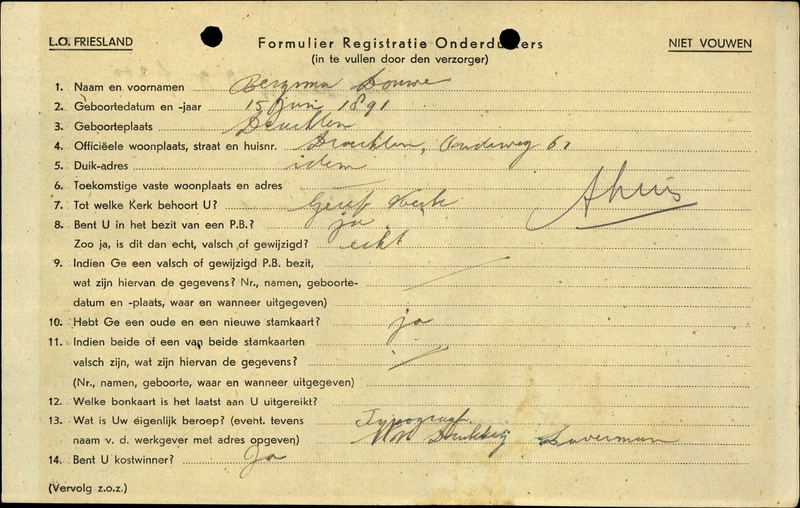 L.O. FRIESLAND
Formulier Registratie Onderduikers
NIET VOUWEN
(in te vullen door den verzorger)
1. Naam en voornamen Bergsma Douwe
2. Geboortedatum en -jaar 15 Juni 1891
3. Geboorteplaats Drachten
4. Officiëele woonplaats, straat en huisnr. Drachten, Oudeweg
5. Duik-adres idem
6. Toekomstige vaste woonplaats en adres
7. Tot welke Kerk behoort U? Geref Kerk
8. Bent U in het bezit van een P.B.? ja
Zoo ja, is dit dan echt, valsch of gewijzigd? echt
9. Indien Ge een valsch of gewijzigd P.B. bezit,
wat zijn hiervan de gegevens? Nr., namen, geboorte-
datum en -plaats, waar en wanneer uitgegeven)
10. Hebt Ge een oude en een nieuwe stamkaart? ja
11. Indien beide of een van beide stamkaarten
valsch zijn, wat zijn hiervan de gegevens?
(Nr., namen, geboorte, waar en wanneer uitgegeven)
12. Welke bonkaart is het laatst aan U uitgereikt?
13. Wat is Uw eigenlijk beroep? (event. tevens Typograaf
naam v. d. werkgever met adres opgeven) Laverman
14. Bent U kostwinner? Ja
(Vervolg z.o.z.)